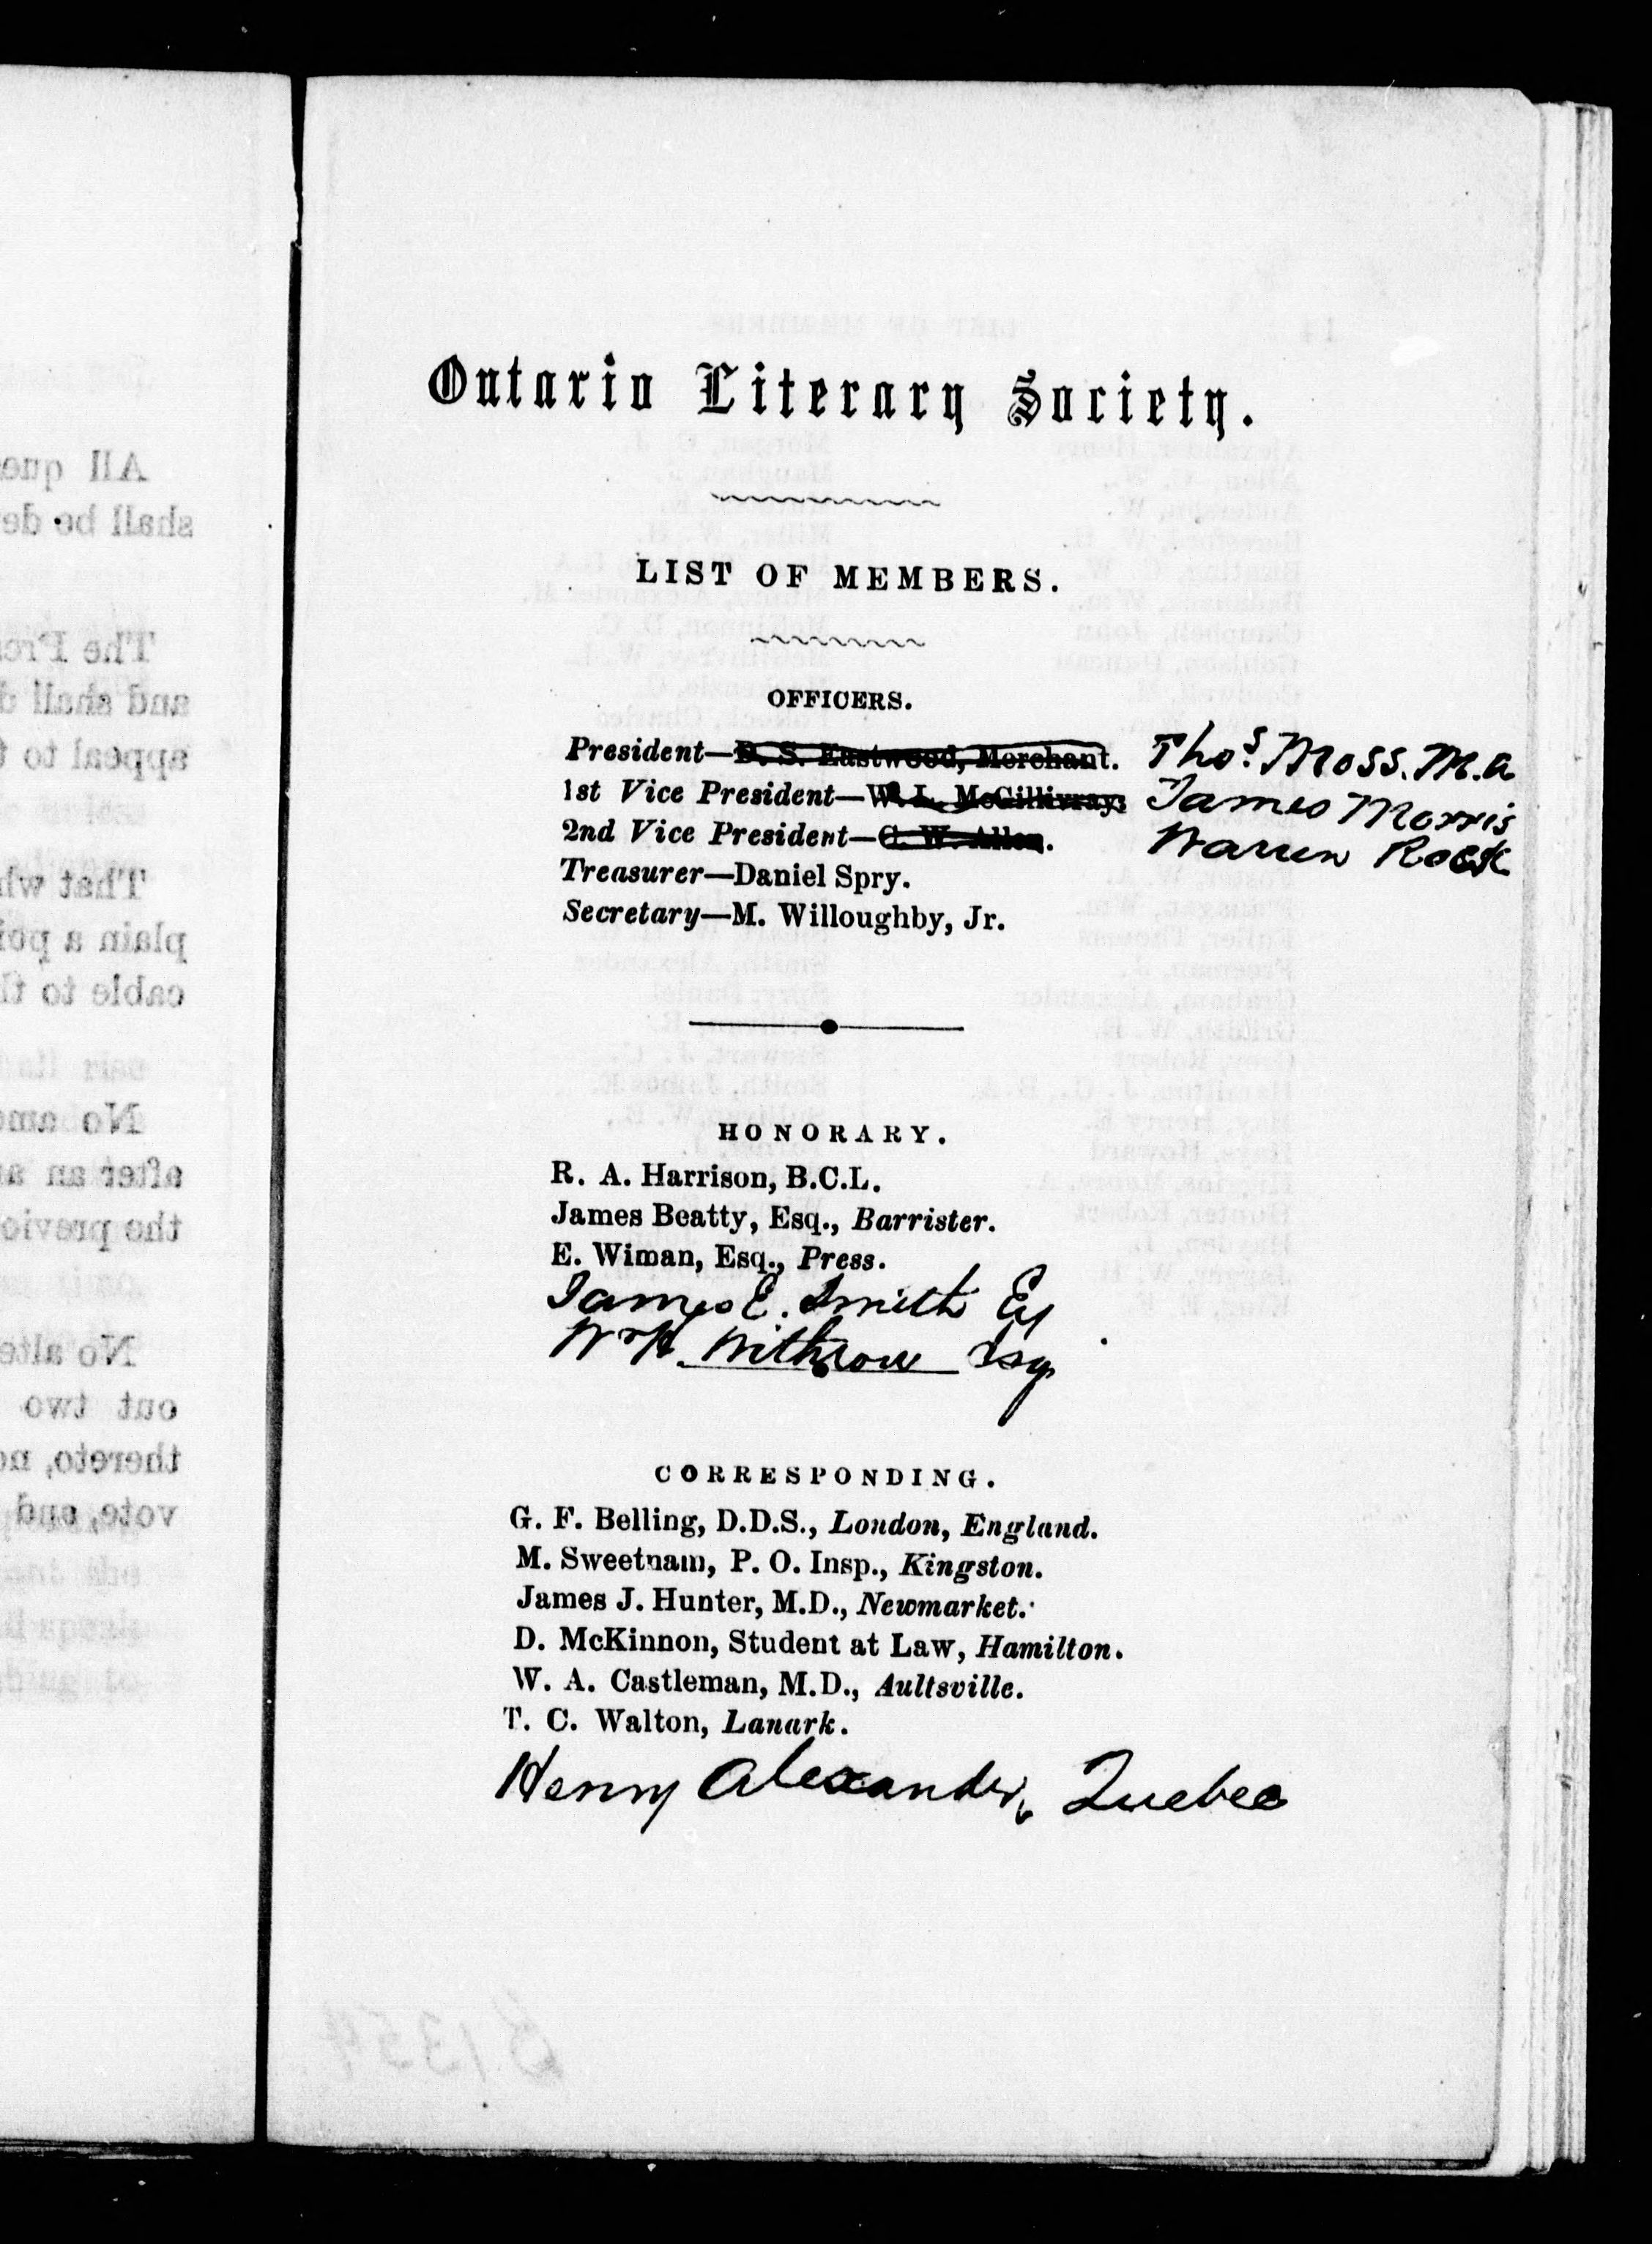 Ontario Literary Society.
LIST OF MEMBERS.
OFFICERS.
President—D. S. Eastwood, Merchant. Thos. Moss. M.A
1st Vice President—W. L. McGillivray. James Morris
2nd Vice President—G. W. Allen. Warren Rock
Treasurer—Daniel Spry.
Secretary—M. Willoughby, Jr.
HONORARY.
R. A. Harrison, B.C.L.
James Beatty, Esq., Barrister.
E. Wiman, Esq., Press.
James E. Smith Esq
Wm H. Withrow Esq
CORRESPONDING.
G. F. Belling, D.D.S., London, England.
M. Sweetnam, P. O. Insp., Kingston.
James J. Hunter, M.D., Newmarket.
D. McKinnon, Student at Law, Hamilton.
W. A. Castleman, M.D., Aultsville.
T. C. Walton, Lanark.
Henry Alexander, Quebec